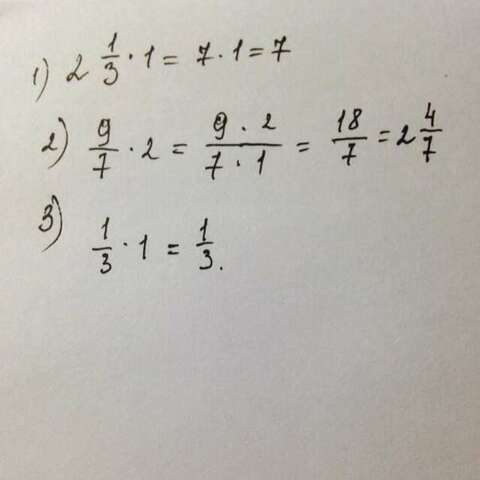 1) 2 1/3 · 1 = 7 · 1 = 7
2) 9/7 · 2 = 9 · 2/7 · 1 = 18/7 = 2 4/7
3) 1/3 · 1 = 1/3.